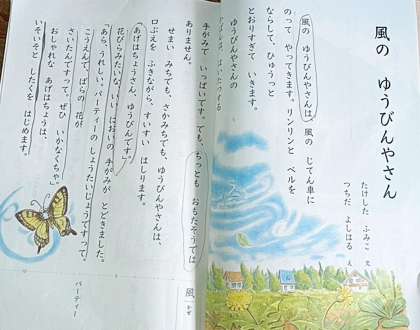 風の ゆうびんやさん
たけした ふみこ さく
つちだ よしはる え
風の ゆうびんやさんは、風の じてん車に
のって やってきます。リンリンと ベルを
ならして、ひゅうっと
とおりすぎて いきます。
ゆうびんやさんの
手がみで いっぱいです。でも、ちっとも おもたそうでは
ありません。
せまい みちでも、さかみちでも、ゆうびんやさんは、
口ぶえを ふきながら、すいすい はしります。
「あげはちょうさん、ゆうびんです。」
花びらみたいな いい におい の 手がみが とどきました。
「あら、うれしい。パーティーの しょうたいじょうですって。
こうえんで ばらの 花が
さいたんですって。ぜひ いかなくちゃ。」
おしゃれな あげはちょうは、
いそいそと したくを はじめます。
風
かぜ
パーティー